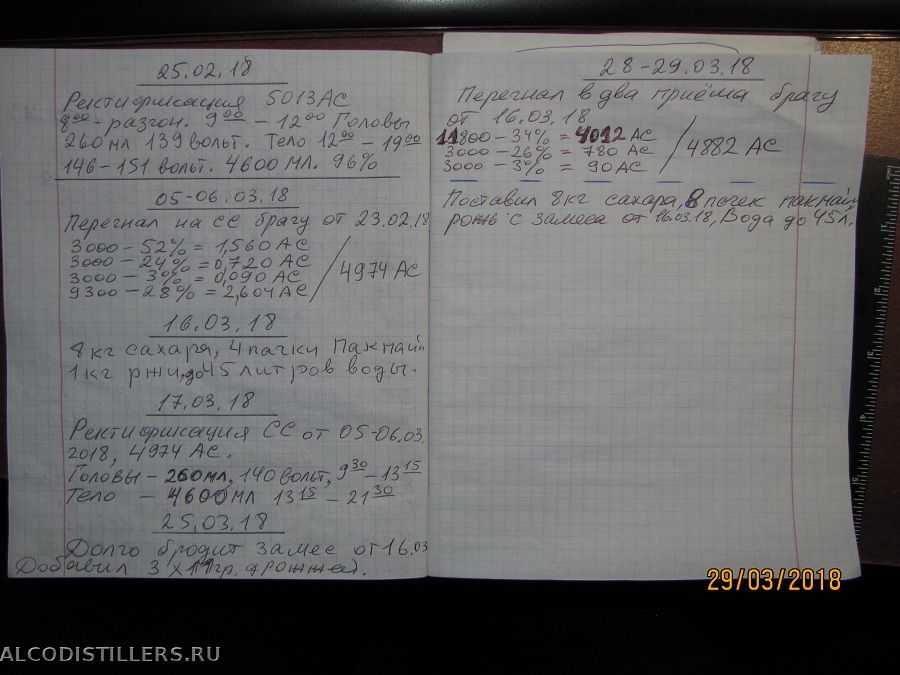 25.02.18
Ректификация 5013АС
8⁰⁰ - разгон. 9⁰⁰ - 12⁰⁰ Головы
260 мл 139 вольт. Тело 12⁰⁰ - 19⁰⁰
146-151 вольт. 4600 мл. 96%
05-06.03.18
Перегнал на СС брагу от 23.02.18
3000 - 52% = 1,560 АС
3000 - 24% = 0,720 АС
3000 - 3% = 0,090 АС
9300 - 28% = 2,604 АС
/ 4974 АС
16.03.18
8 кг сахара, 4 пачки Пакмайи
1 кг ржи, до 45 литров воды.
17.03.18
Ректификация СС от 05-06.03.
2018, 4974 АС.
Головы - 260 мл, 140 вольт, 9³⁰ - 13¹⁵
Тело - 4600 мл 13¹⁵ - 21³⁰
25.03.18
Долго бродит замес от 16.03
Добавил 3 х 11 гр. дрожжей.
28-29.03.18
Перегнал в два приёма брагу
от 16.03.18
11800 - 34% = 4012 АС
3000 - 26% = 780 АС
3000 - 3% = 90 АС
/ 4882 АС
Поставил 8 кг сахара, 8 пачек пакмайи
рожь с замеса от 16.03.18, Вода до 45 л.
29/03/2018
ALCODISTILLERS.RU